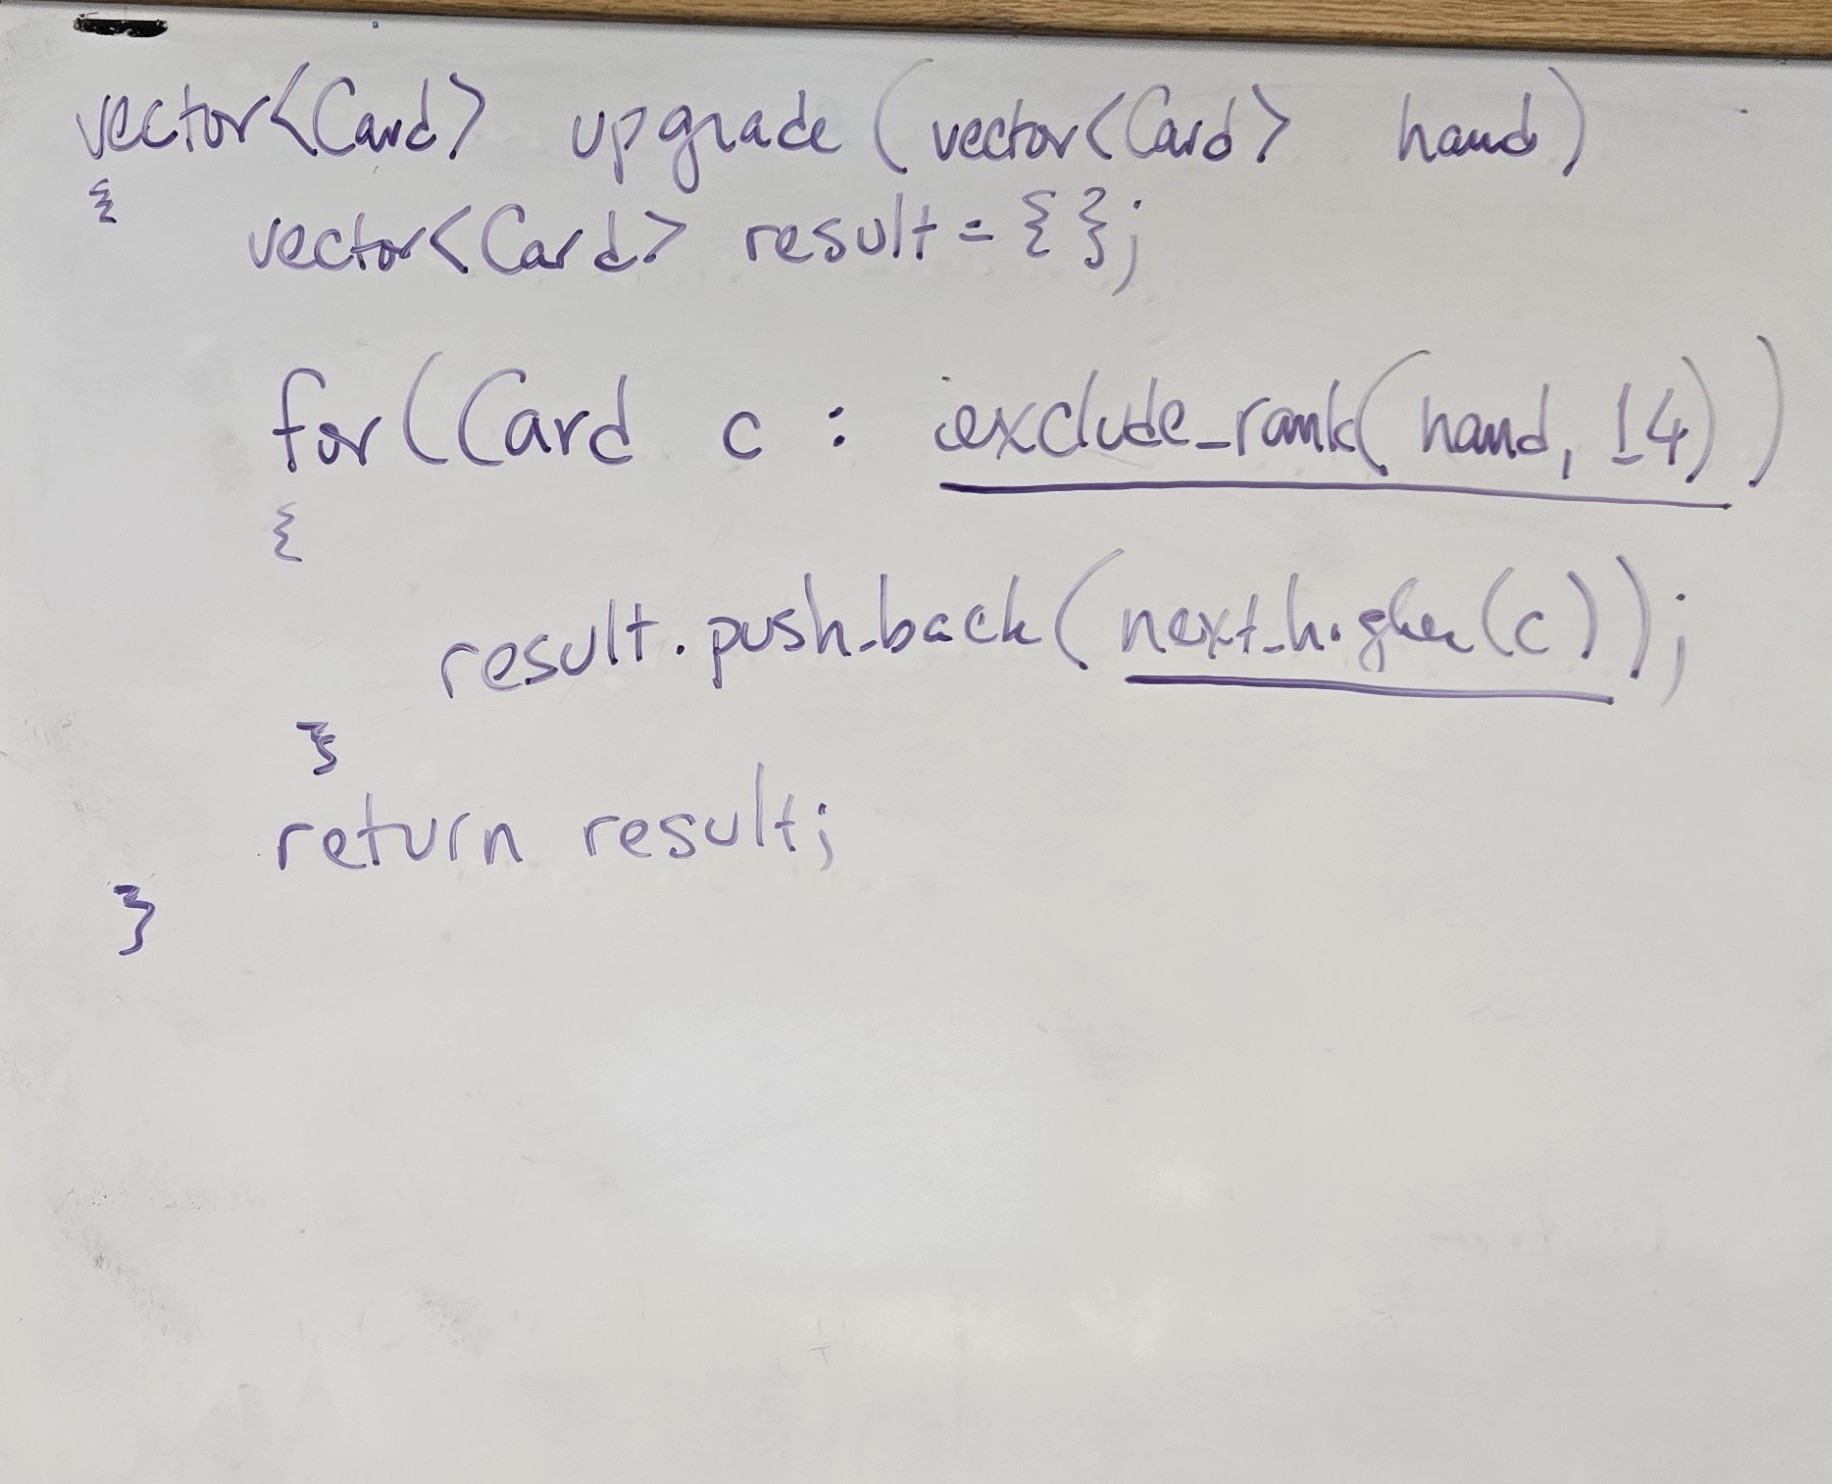 vector<Card> upgrade(vector<Card> hand)
{
vector<Card> result = {};
for(Card c : exclude_rank(hand, 14))
{
result.push_back(next_higher(c));
}
return result;
}